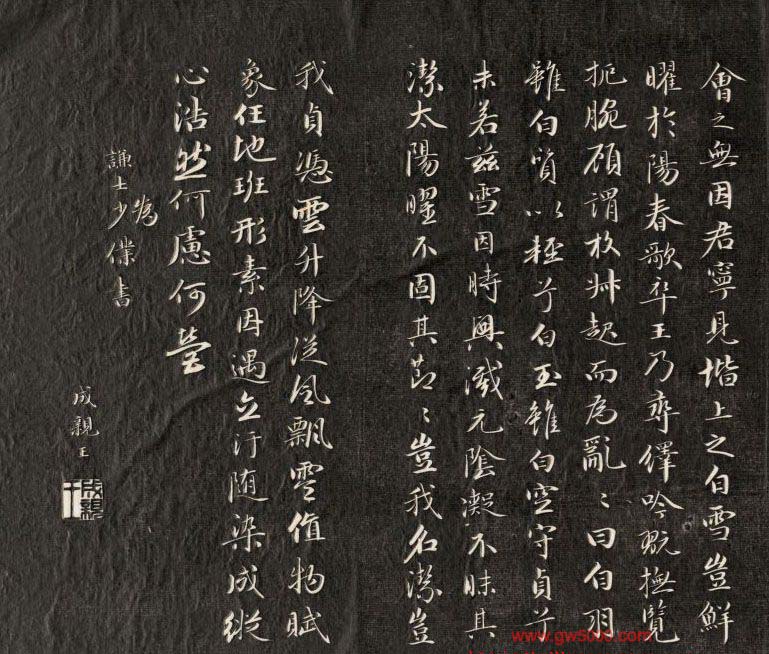 會之無因君寧見堦上之白雪豈鮮
曜於陽春歌卒王乃尋繹吟翫撫覽
扼腕顧謂枚叔起而為亂〻曰白羽
雖白質以輕兮白玉雖白空守貞兮
未若茲雪因時興滅元陰凝不昧其
潔太陽曜不固其節〻豈我名潔豈
我貞憑雲升降從風飄零值物賦
象任地班形素因遇立汙随染成縱
心浩然何慮何營
為
謙士少僕書
成親王